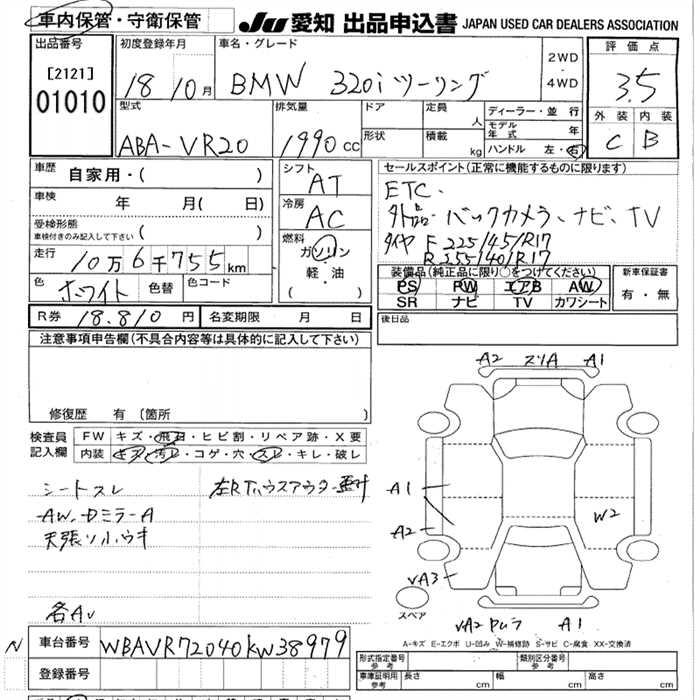 車内保管・守衛保管
JU 愛知 出品申込書 JAPAN USED CAR DEALERS ASSOCIATION
出品番号
[2121]
01010
初度登録年月
18 10月
車名・グレード
BMW 320i ツーリング
2WD
・
4WD
評価点
3.5
外装 内装
C B
型式
ABA-VR20
排気量
1990 cc
ドア
形状
定員
人
積載
kg
ディーラー・並行
モデル年式 年
ハンドル 左・右
車歴
自家用・( )
車検
年 月( 日)
受検形態
車検付きのみ記入して下さい ( )
走行
10万6千755km
色
ホワイト
色替
色コード
シフト
AT
冷房
AC
燃料
ガソリン
軽・油
( )
セールスポイント(正常に機能するものに限ります)
ETC.
バックカメラ、ナビ、TV
タイヤ F 225/45/R17
R 255/40/R17
装備品(純正品に限り○をつけてください)
PS PW エアB AW
SR ナビ TV カワシート
新車保証書
有・無
R券 18.810 円
名変期限 月 日
後日品
注意事項申告欄(不具合内容等は具体的に記入して下さい)
修復歴 有(箇所 )
検査員記入欄
FW キズ・飛石・ヒビ割・リペア跡・X要
内装 キズ・汚レ・コゲ・穴・スレ・キレ・破レ
シートスレ
AW、DミラーA
各AU
A2 スリA A1
A1
A2
W2
UA3
スペア
A1
A-キズ E-エクボ U-凹み W-補修跡 S-サビ C-腐食 XX-交換済
N
車台番号
WBAVR72040KW38979
登録番号
形式指定番号
参考
類別区分番号
参考
車庫証明用
参考
長さ cm
幅 cm
高さ cm